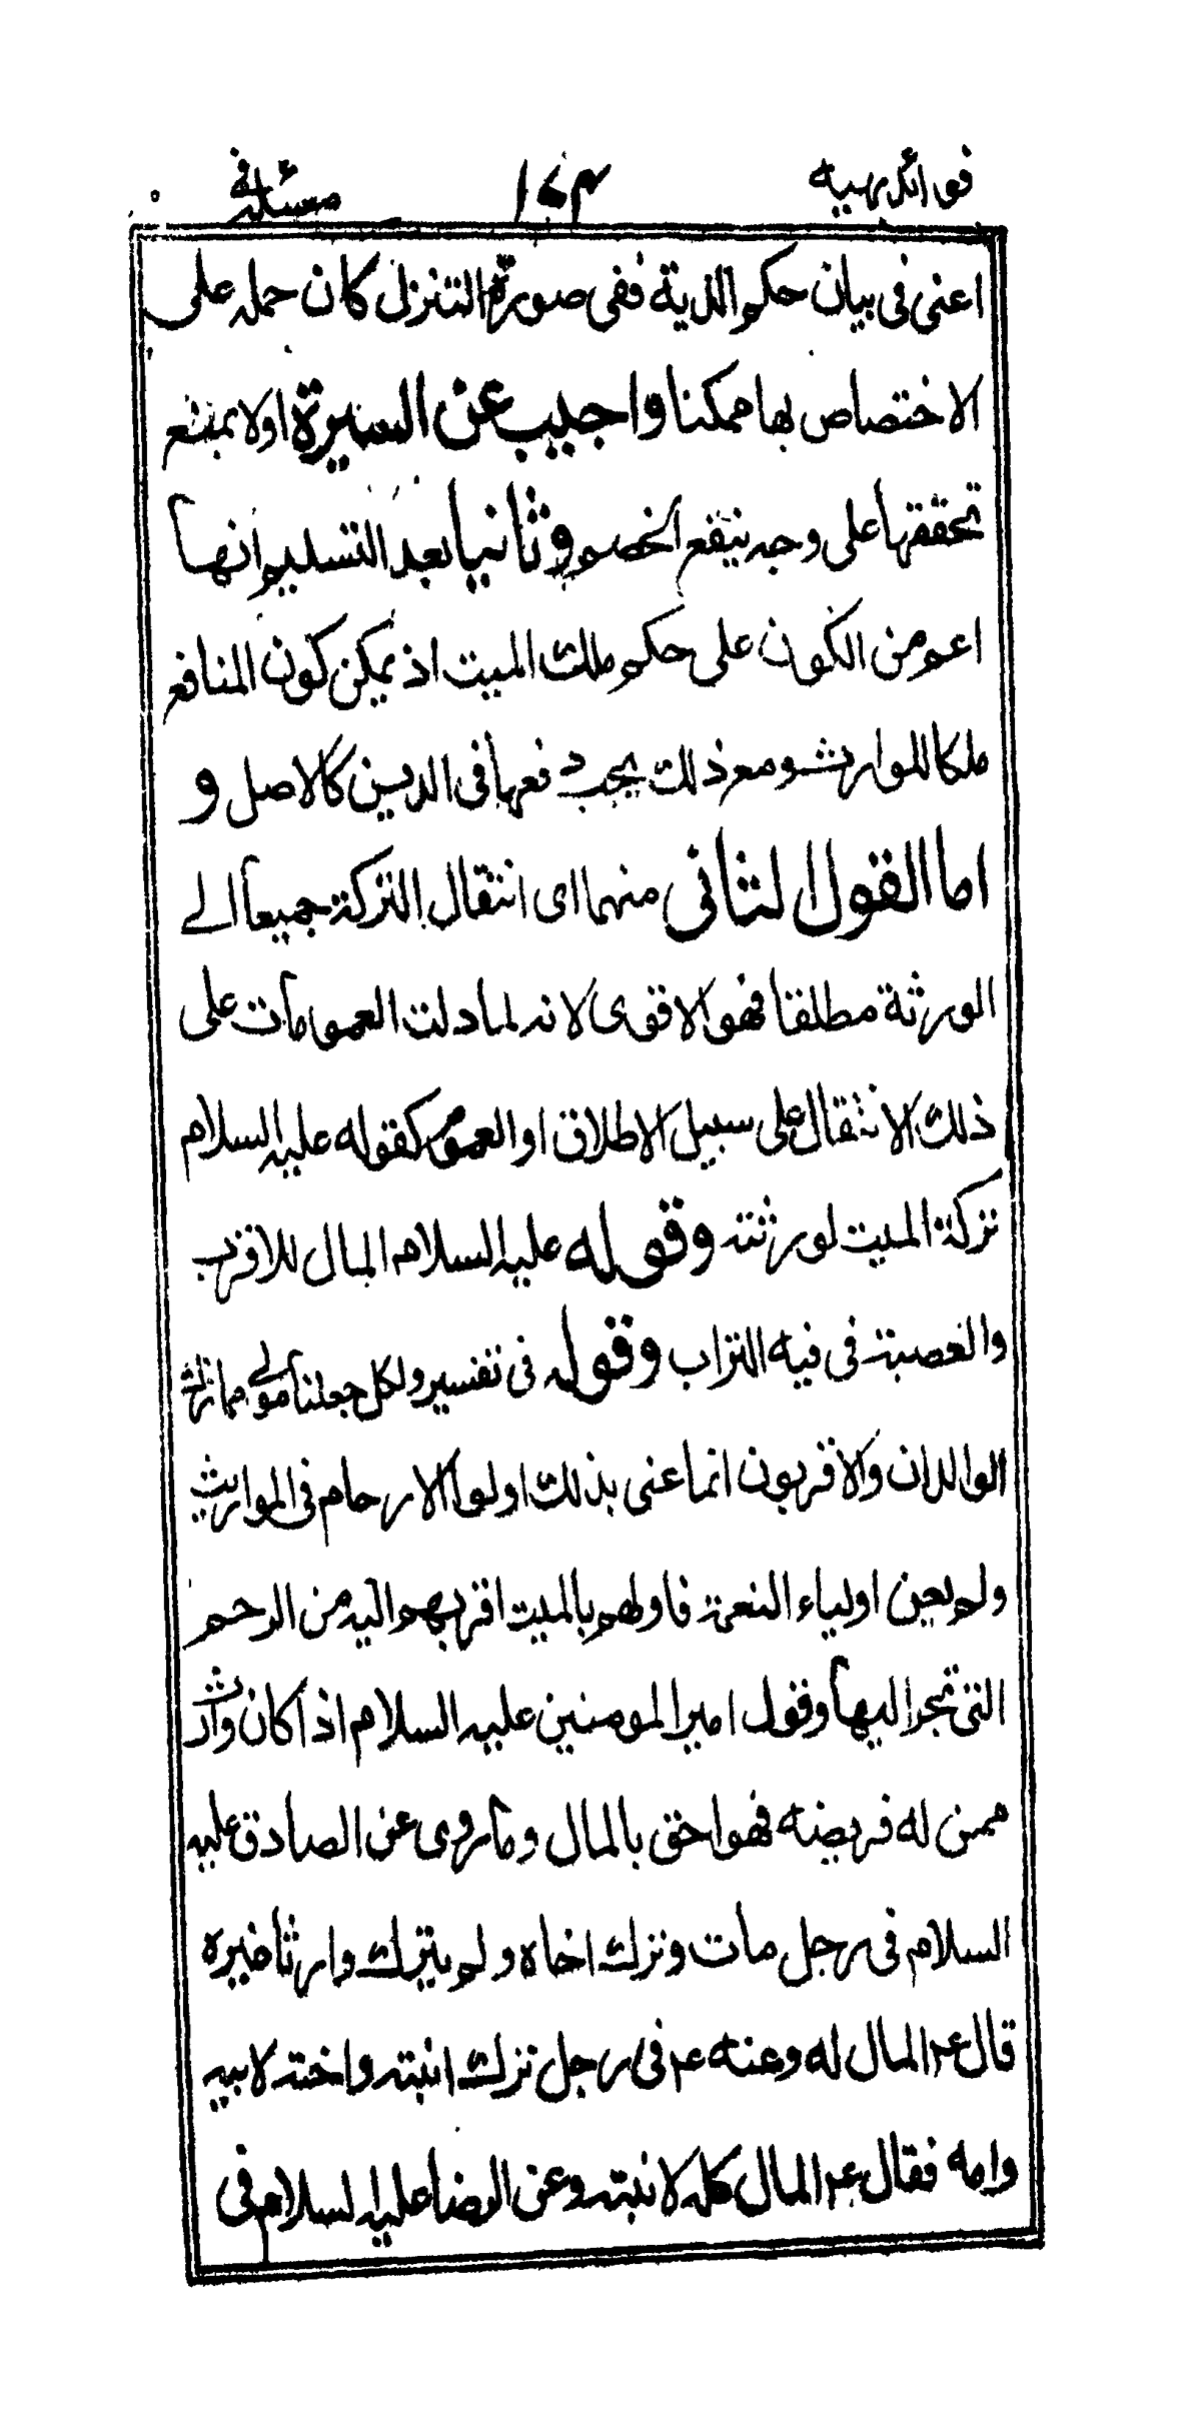 فوائد بهيه ١٧٣ مسئلة في
اعنى فى بيان حكم الدية ففى صورة التنزل كان حمله على
الاختصاص بها ممكنا واجيب عن السيرة اولا بمنع
تحققها على وجه ينفع الخصم وثانيا بعد التسليم انها
اعم من الكون على حكم ملك الميت اذ يمكن كون المنافع
ملكا للوارث ومع ذلك يجب دفعها فى الدين كالاصل و
اما القول الثانى منهما اى انتقال التركة جميعا الے
الورثة مطلقا فهو الاقوى لانه لما دلت العمومات على
ذلك الانتقال على سبيل الاطلاق او العموم كقوله عليه السلام
تركة الميت لورثته وقوله عليه السلام المال للاقرب
والعصبة فى فيه التراب وقوله فى تفسير ولكل جعلنا موالے مما ترك
الوالدان والاقربون انما عنى بذلك اولوا الارحام فى المواريث
ولم يعن اولياء النعمة فاولهم بالميت اقربهم اليه من الرحم
التى تجر اليها وقول امير المومنين عليه السلام اذا كان وارث
ممن له فريضه فهو احق بالمال وما روى عن الصادق عليه
السلام فى رجل مات وترك اخاه ولم يترك وارثا غيره
قال ع المال له وعنه ع فى رجل ترك ابنته واخته لابيه
وامه فقال ع المال كله لابنته وعن الرضا عليه السلام فى